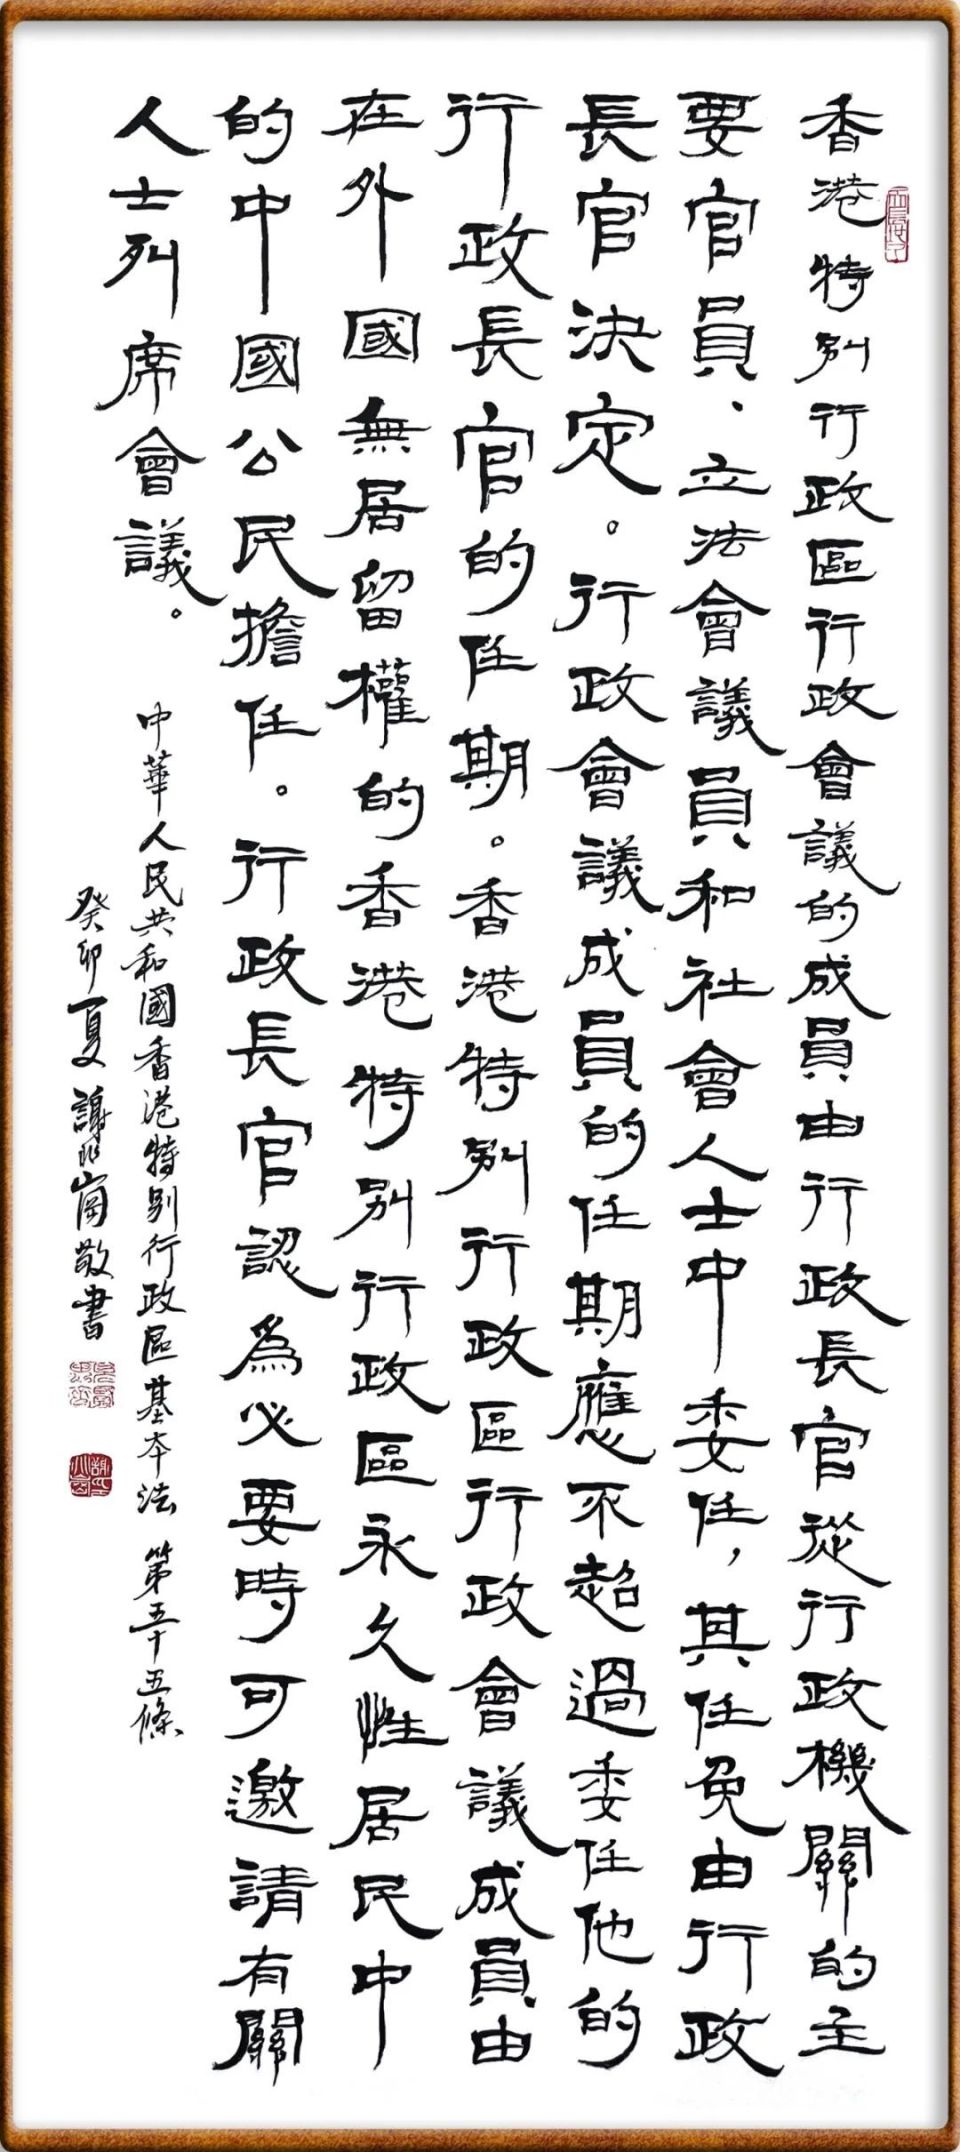 香港特別行政區行政會議的成員由行政長官從行政機關的主
要官員、立法會議員和社會人士中委任，其任免由行政
長官決定。行政會議成員的任期應不超過委任他的
行政長官的任期。香港特別行政區行政會議成員由
在外國無居留權的香港特別行政區永久性居民中
的中國公民擔任。行政長官認爲必要時可邀請有關
人士列席會議。
中華人民共和國香港特別行政區基本法 第五十五條
癸卯夏 謝崗敬書